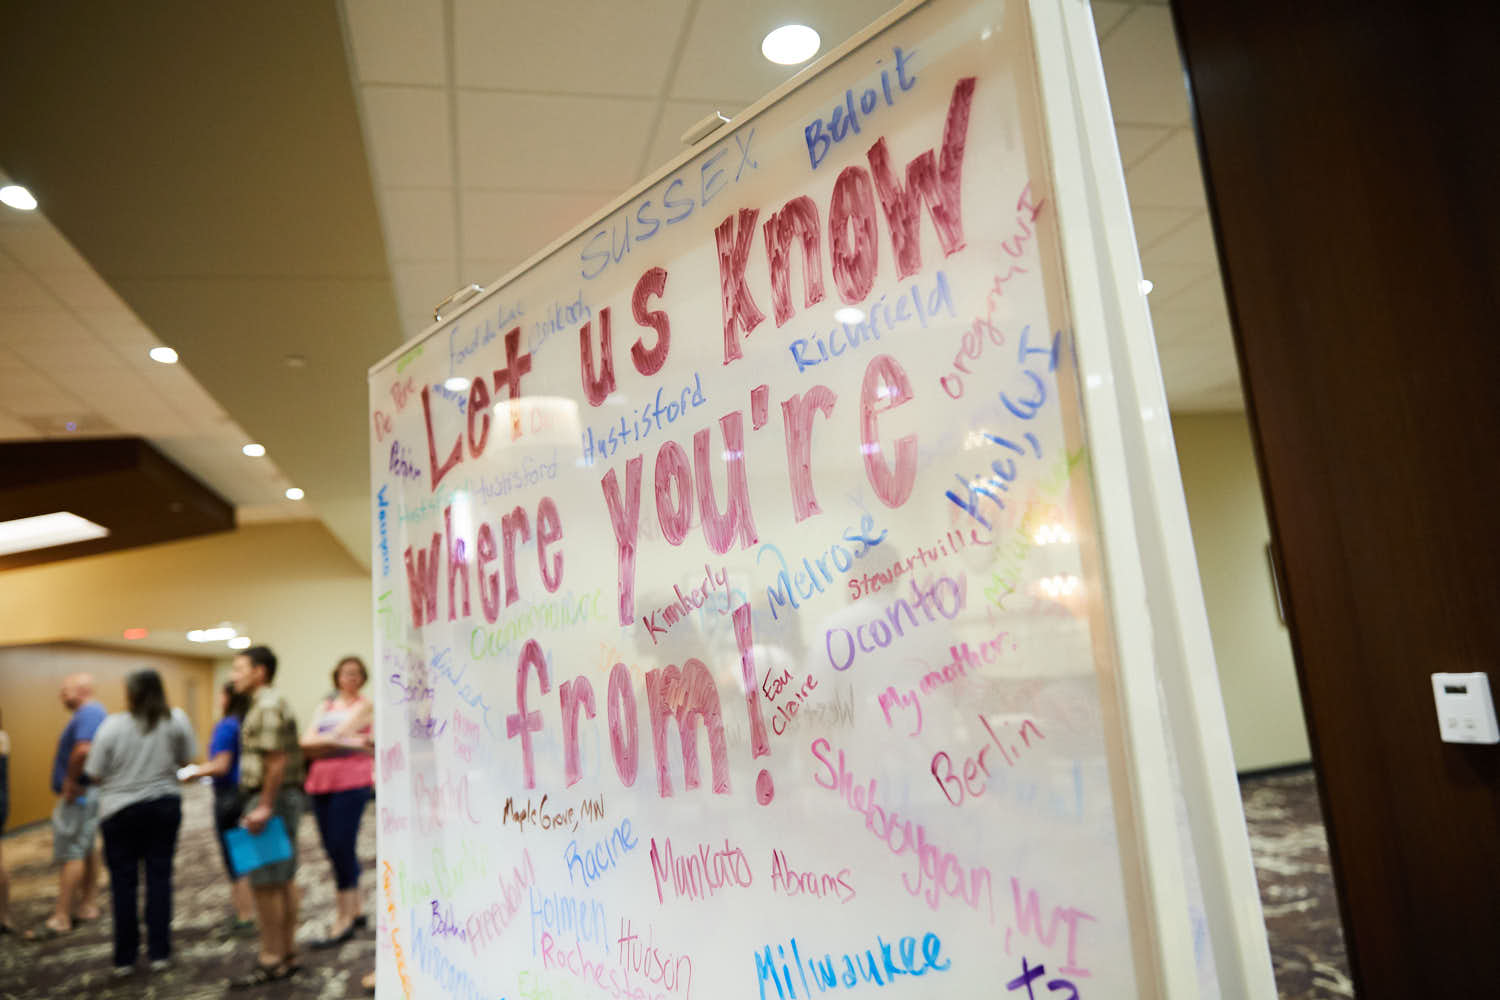 Beloit
SUSSEX
Let us know
Fond du Lac
Oshkosh
De Pere
oregon, WI
Richfield
Hustisford
Hustisford
where you're
Kiel, WI
Melrose
Stewartville
Kimberly
Oconomowoc
Oconto
from!
Eau
Claire
My mother.
Berlin
Sheboygan, WI
Berlin
Maple Grove, MN
Racine
Mankato
Abrams
Freedom
Holmen
Hudson
Rochester
Milwaukee